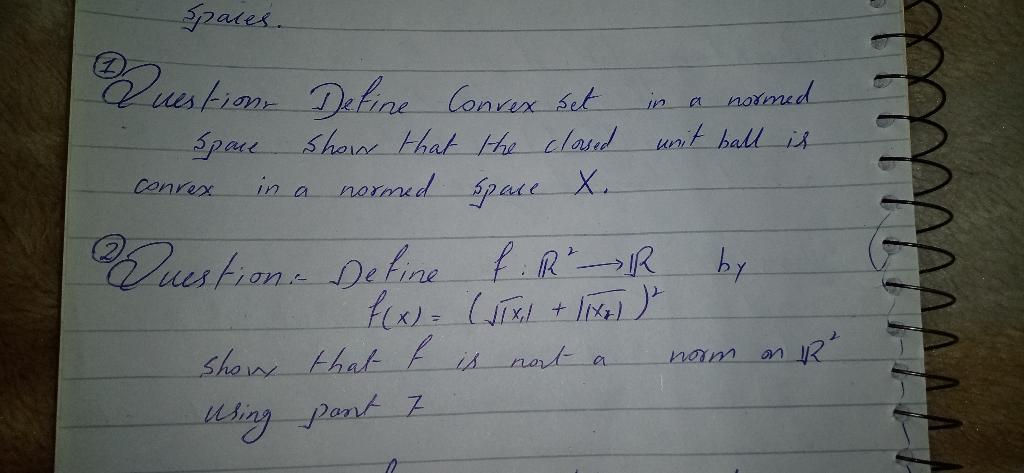 Spaces.
① Question:- Define Convex Set in a normed
Space Show that the closed unit ball is
convex in a normed Space X.
② Question:- Define f: ℝ² → ℝ by
f(x) = (√|x₁| + √|x₂|)²
Show that f is not a norm on ℝ²
using part 7